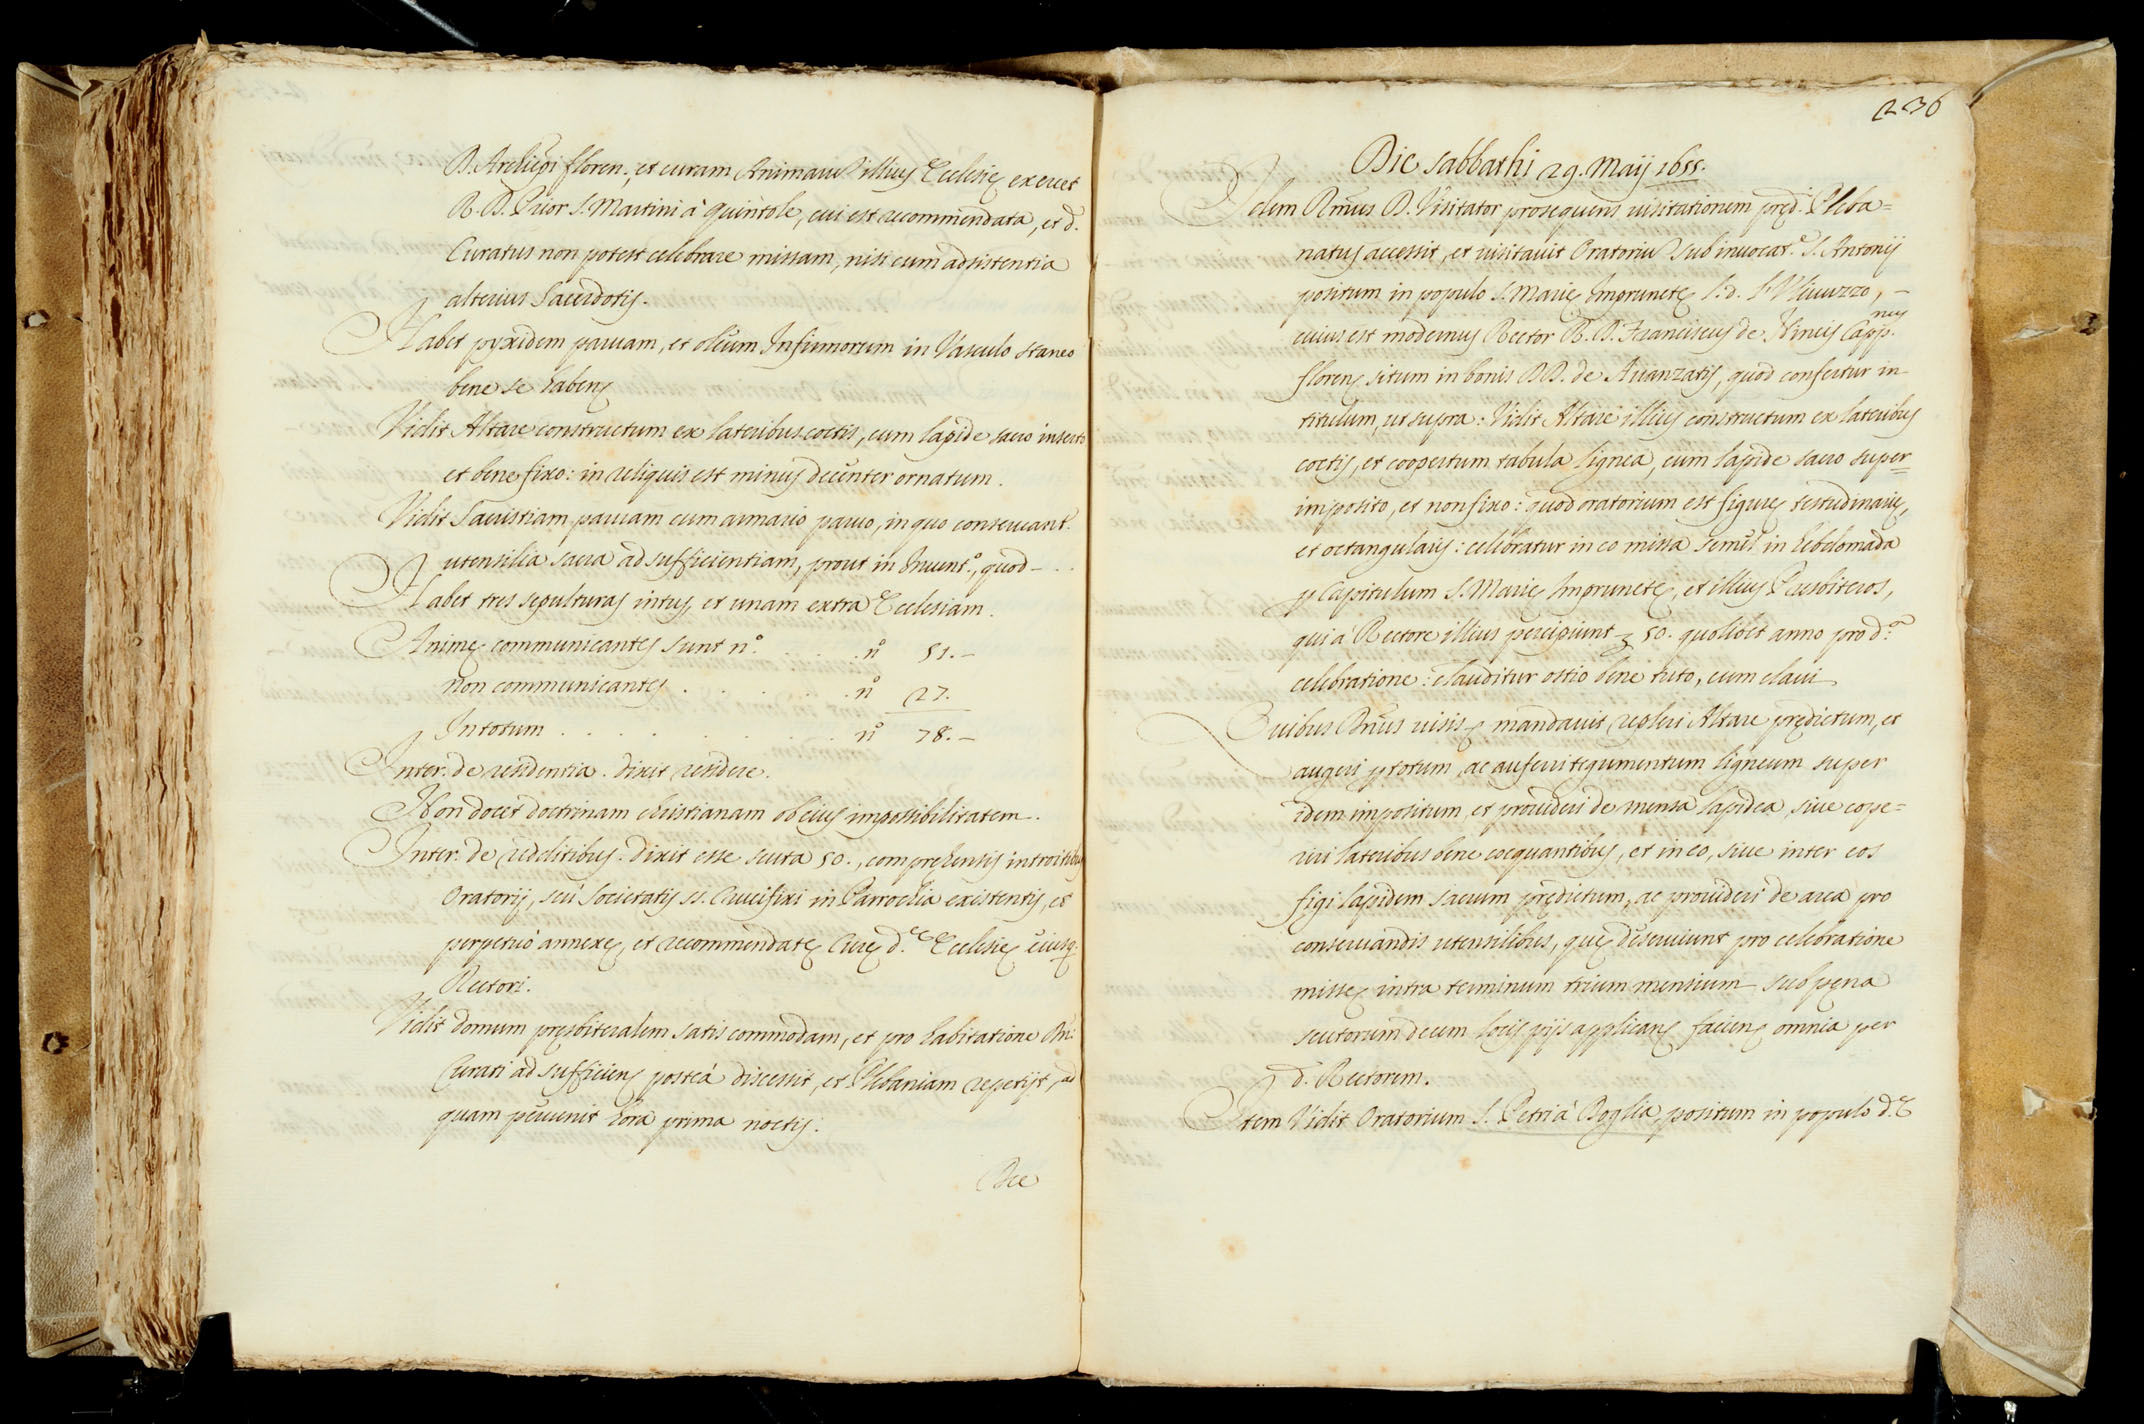 D. Archiepi floren., et curam Animaru illius Ecclesię exercet
R. D. Prior S. Martini à quintole, cui est recommendata, et d.
Curatus non potest celebrare missam, nisi cum adsistentia
alterius Sacerdotis.
Habet pyxidem parvam, et oleum Infirmorum in Vasculo staneo
bene se habens
Vidit Altare constructum ex lateribus coctis, cum lapide sacro inserto
et bene fixo: in reliquis est minus decenter ornatum.
Vidit Sacristiam parvam cum armario parvo, in quo conservant.
utensilia sacra ad sufficientiam, prout in Invent.º, quod - . .
Habet tres sepulturas intus, et unam extra Ecclesiam.
Animę communicantes sunt nº. . . . . nº 51.-
non communicantes . . . . . . nº 27.
In totum . . . . . . . . nº 78.-
Inter. de residentia. dixit residere.
Non docet doctrinam christianam ob eius impossibilitatem.
Inter. de redditibus. dixit esse scuta 50., comprehensis introitibus
Oratorij, seù Societatis SS. Crucifixi in Parrochia existentis, et
perpetuò annexę, et recommendatę Curę d.ę Ecclesię eiusq.
Rectori.
Vidit domum pręsbiteralem satis commodam, et pro habitatione Dni
Curati ad sufficiens posteà discessit, et Plebaniam repetijt, ad
quam pervenit hora prima noctis.
Die
236
Die sabbathi 29. Maij 1655.
Idem Rmus D. Visitator prosequens visitationem pręd.i Pleba=
natus accessit, et visitavit Oratoriu sub invocat.e S. Antonij
positum in populo S. Marię Imprunetę l.d.
cuius est modernus Rector R. D. Franciscus de Vincis Capp.nus
floren; situm in bonis DD. de Avanzatis, quod confertur in
titulum, ut supra: Vidit Altare illius constructum ex lateribus
coctis, et coopertum tabula lignea, cum lapide sacro super=
imposito, et non fixo: quod oratorium est figurę testudinarię,
et octangularis: celebratur in eo missa semel in hebdomada
p Capitulum S. Marię Imprunetę, et illius Presbiteros,
qui à Rectore illius percipiunt 50. quolibet anno pro d.a
celebratione: clauditur ostio bene tuto, cum clavi
Quibus Dnus visis mandavit repleri Altare prędictum, et
augeri p totum, ac auferri tegumentum ligneum super
idem impositum, et provideri de mensa lapidea, sive cope=
riri lateribus bene coequantibus, et in eo, sive inter eos
figi lapidem sacrum prędictum, ac provideri de arca pro
conservandis utensilibus, quę deserviunt pro celebratione
missę intra terminum trium mensium sub pęna
scutorum decem locis pijs applicans faciens omnia per
d. Rectorem.
Item Vidit Oratorium S. Petri à Boglia, positum in populo d.ę